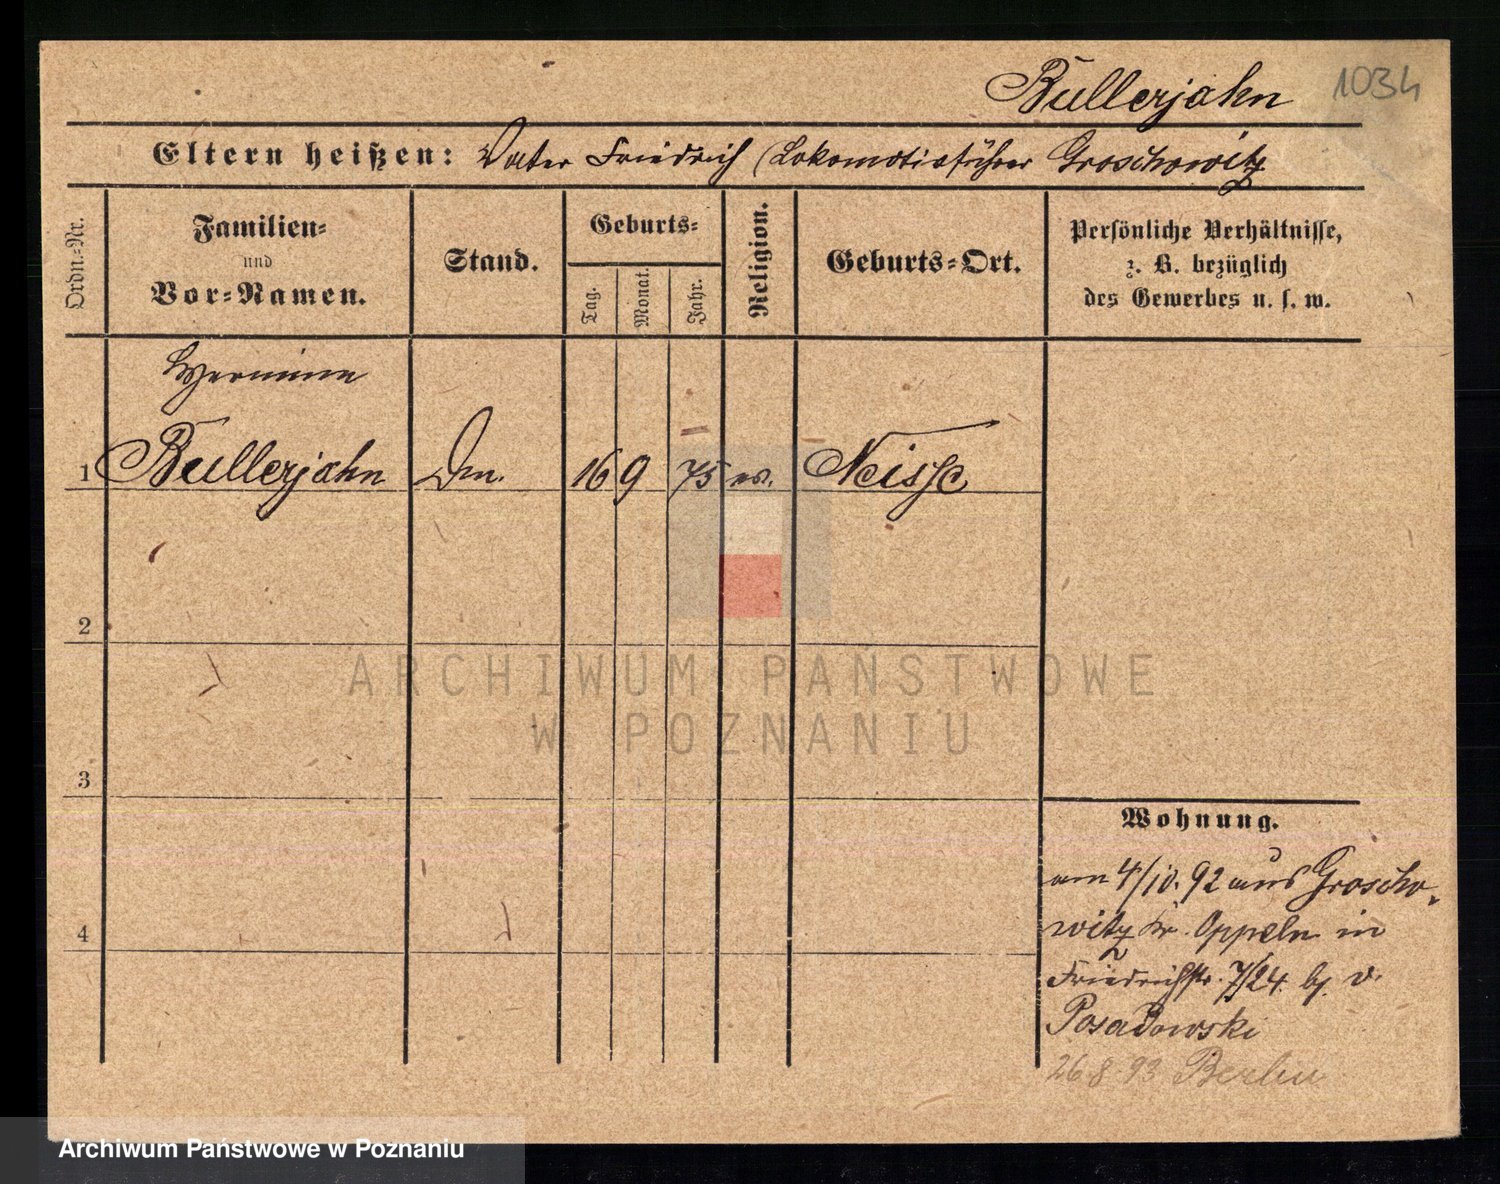 Bullerjahn 1034
Eltern heißen: Vater Friedrich (Lokomotivführer Groschowitz
Ordn.-Nr.
Familien-
und
Vor-Namen.
Stand.
Geburts-
Tag.
Monat.
Jahr.
Religion.
Geburts-Ort.
Persönliche Verhältnisse,
z. B. bezüglich
des Gewerbes u. s. w.
Hermine
1 Bullerjahn 16 9 75 ev. Neisse
2
3
4
Wohnung.
am 4/10. 92 aus Groscho-
witz Kr. Oppeln in
Friedrichstr. 7/24. bj. v.
Posadowski
26 8 93 Berlin
ARCHIWUM PAŃSTWOWE
W POZNANIU
Archiwum Państwowe w Poznaniu